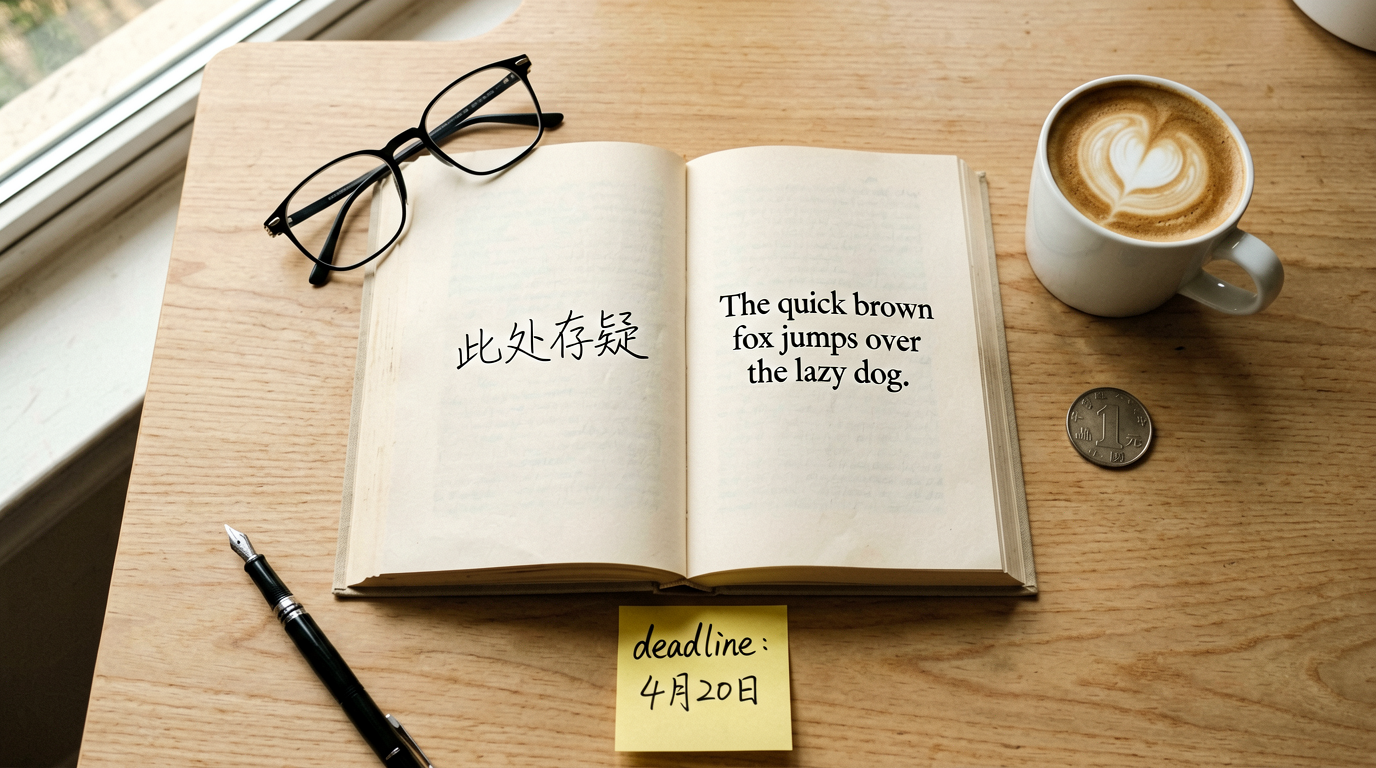 此处存疑
The quick brown
fox jumps over
the lazy dog.
1
元
deadline:
4月20日